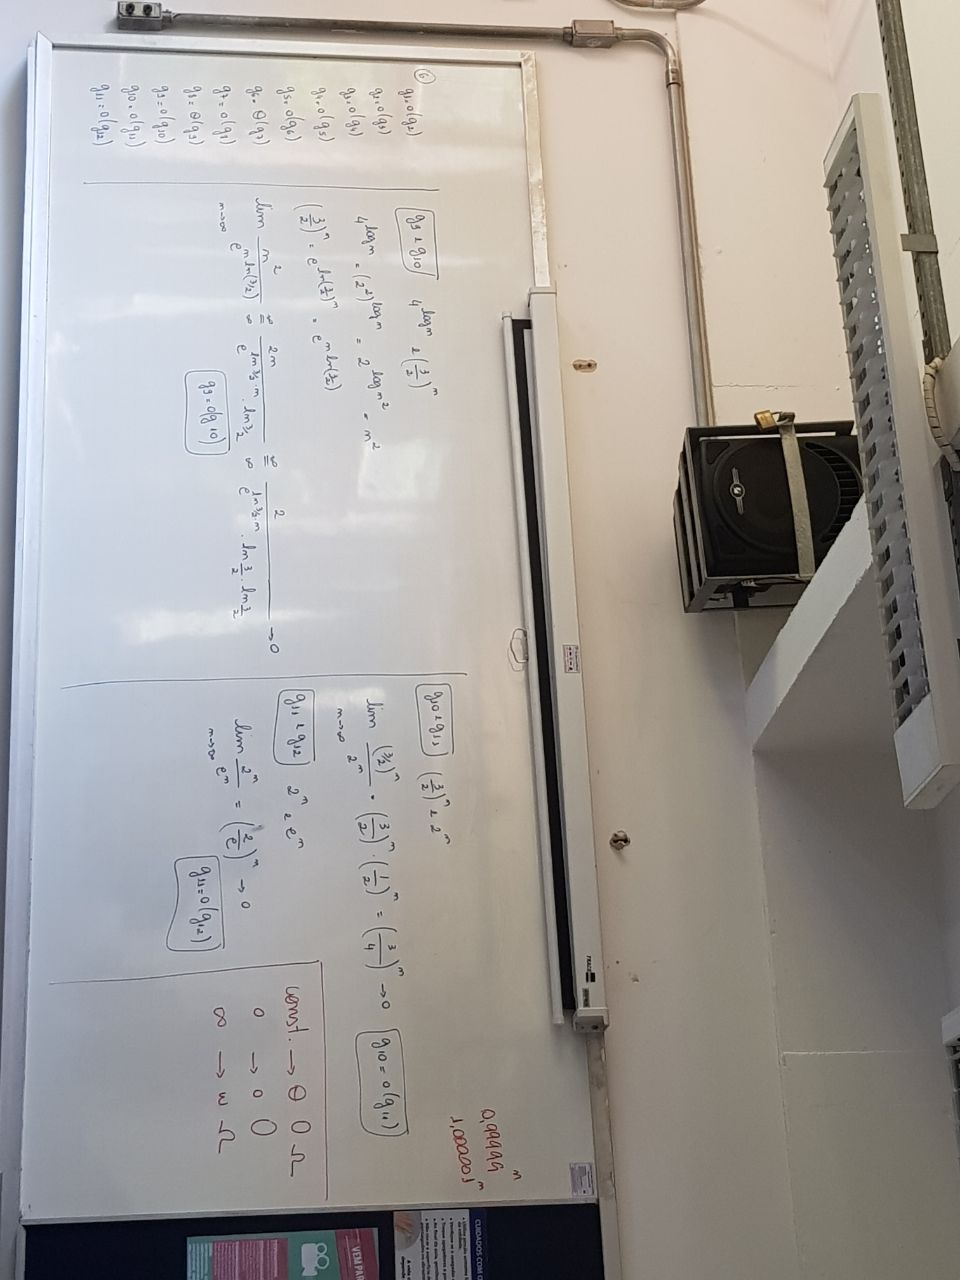 6
g1 = o(g2)
g2 = o(g3)
g3 = o(g4)
g4 = o(g5)
g5 = o(g6)
g6 = θ(g7)
g7 = o(g8)
g8 = θ(g9)
g9 = o(g10)
g10 = o(g11)
g11 = o(g12)
g9 e g10 4^log n e (3/2)^n
4^log n = (2²)^log n = 2^log n² = n²
(3/2)^n = e^ln(3/2)^n = e^n ln(3/2)
lim n→∞ n² / e^n ln(3/2) ∞/∞ = 2n / e^ln 3/2·n · ln 3/2 ∞/∞ = 2 / e^ln 3/2·n · ln 3/2 · ln 3/2 → 0
g9 = o(g10)
g10 e g11 (3/2)^n e 2^n
lim n→∞ (3/2)^n / 2^n = (3/2)^n · (1/2)^n = (3/4)^n → 0
g10 = o(g11)
g11 e g12 2^n e e^n
lim n→∞ 2^n / e^n = (2/e)^n → 0
g11 = o(g12)
0,99999^n
1,000001^n
const. → θ O Ω
0 → o O
∞ → ω Ω
CUIDADOS COM O
VEM PAR